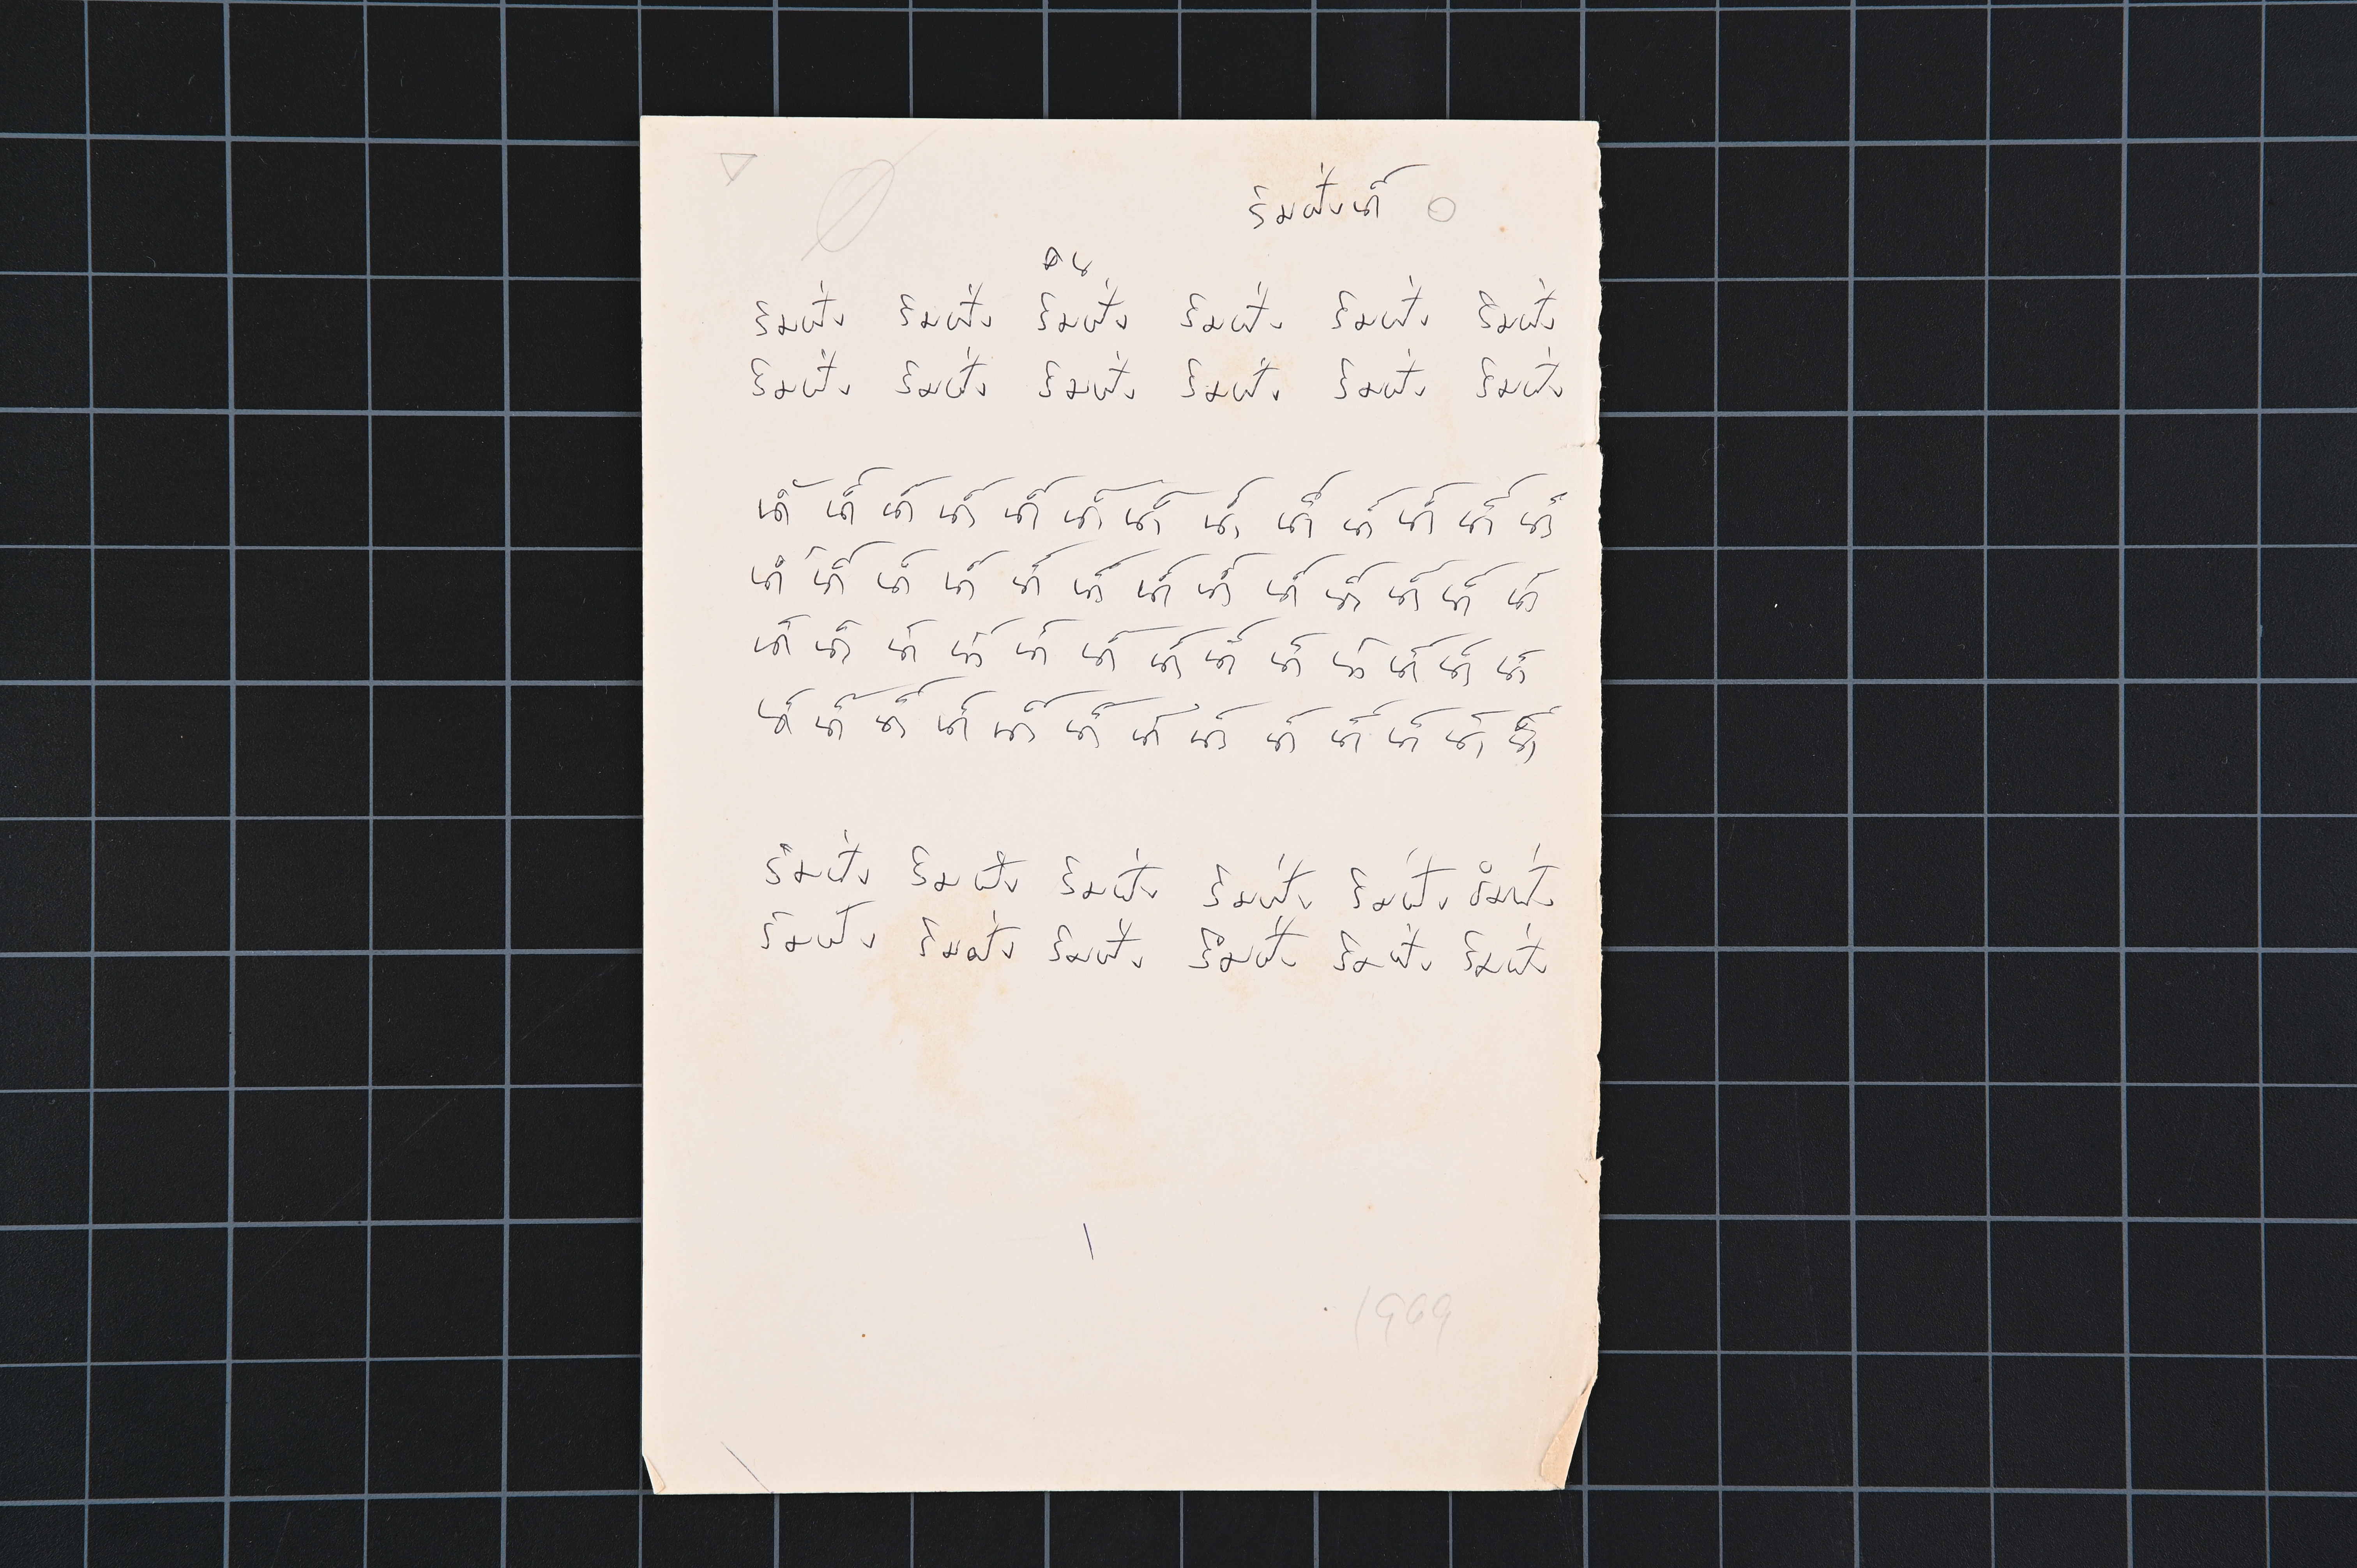 ริมฝั่งน้ำ
ริมฝั่ง ริมฝั่ง ริมฝั่ง ริมฝั่ง ริมฝั่ง ริมฝั่ง
ริมฝั่ง ริมฝั่ง ริมฝั่ง ริมฝั่ง ริมฝั่ง ริมฝั่ง
น้ำ น้ำ น้ำ น้ำ น้ำ น้ำ น้ำ น้ำ น้ำ น้ำ น้ำ น้ำ น้ำ
น้ำ น้ำ น้ำ น้ำ น้ำ น้ำ น้ำ น้ำ น้ำ น้ำ น้ำ น้ำ น้ำ
น้ำ น้ำ น้ำ น้ำ น้ำ น้ำ น้ำ น้ำ น้ำ น้ำ น้ำ น้ำ น้ำ
น้ำ น้ำ น้ำ น้ำ น้ำ น้ำ น้ำ น้ำ น้ำ น้ำ น้ำ น้ำ น้ำ
ริมฝั่ง ริมฝั่ง ริมฝั่ง ริมฝั่ง ริมฝั่ง ริมฝั่ง
ริมฝั่ง ริมฝั่ง ริมฝั่ง ริมฝั่ง ริมฝั่ง ริมฝั่ง